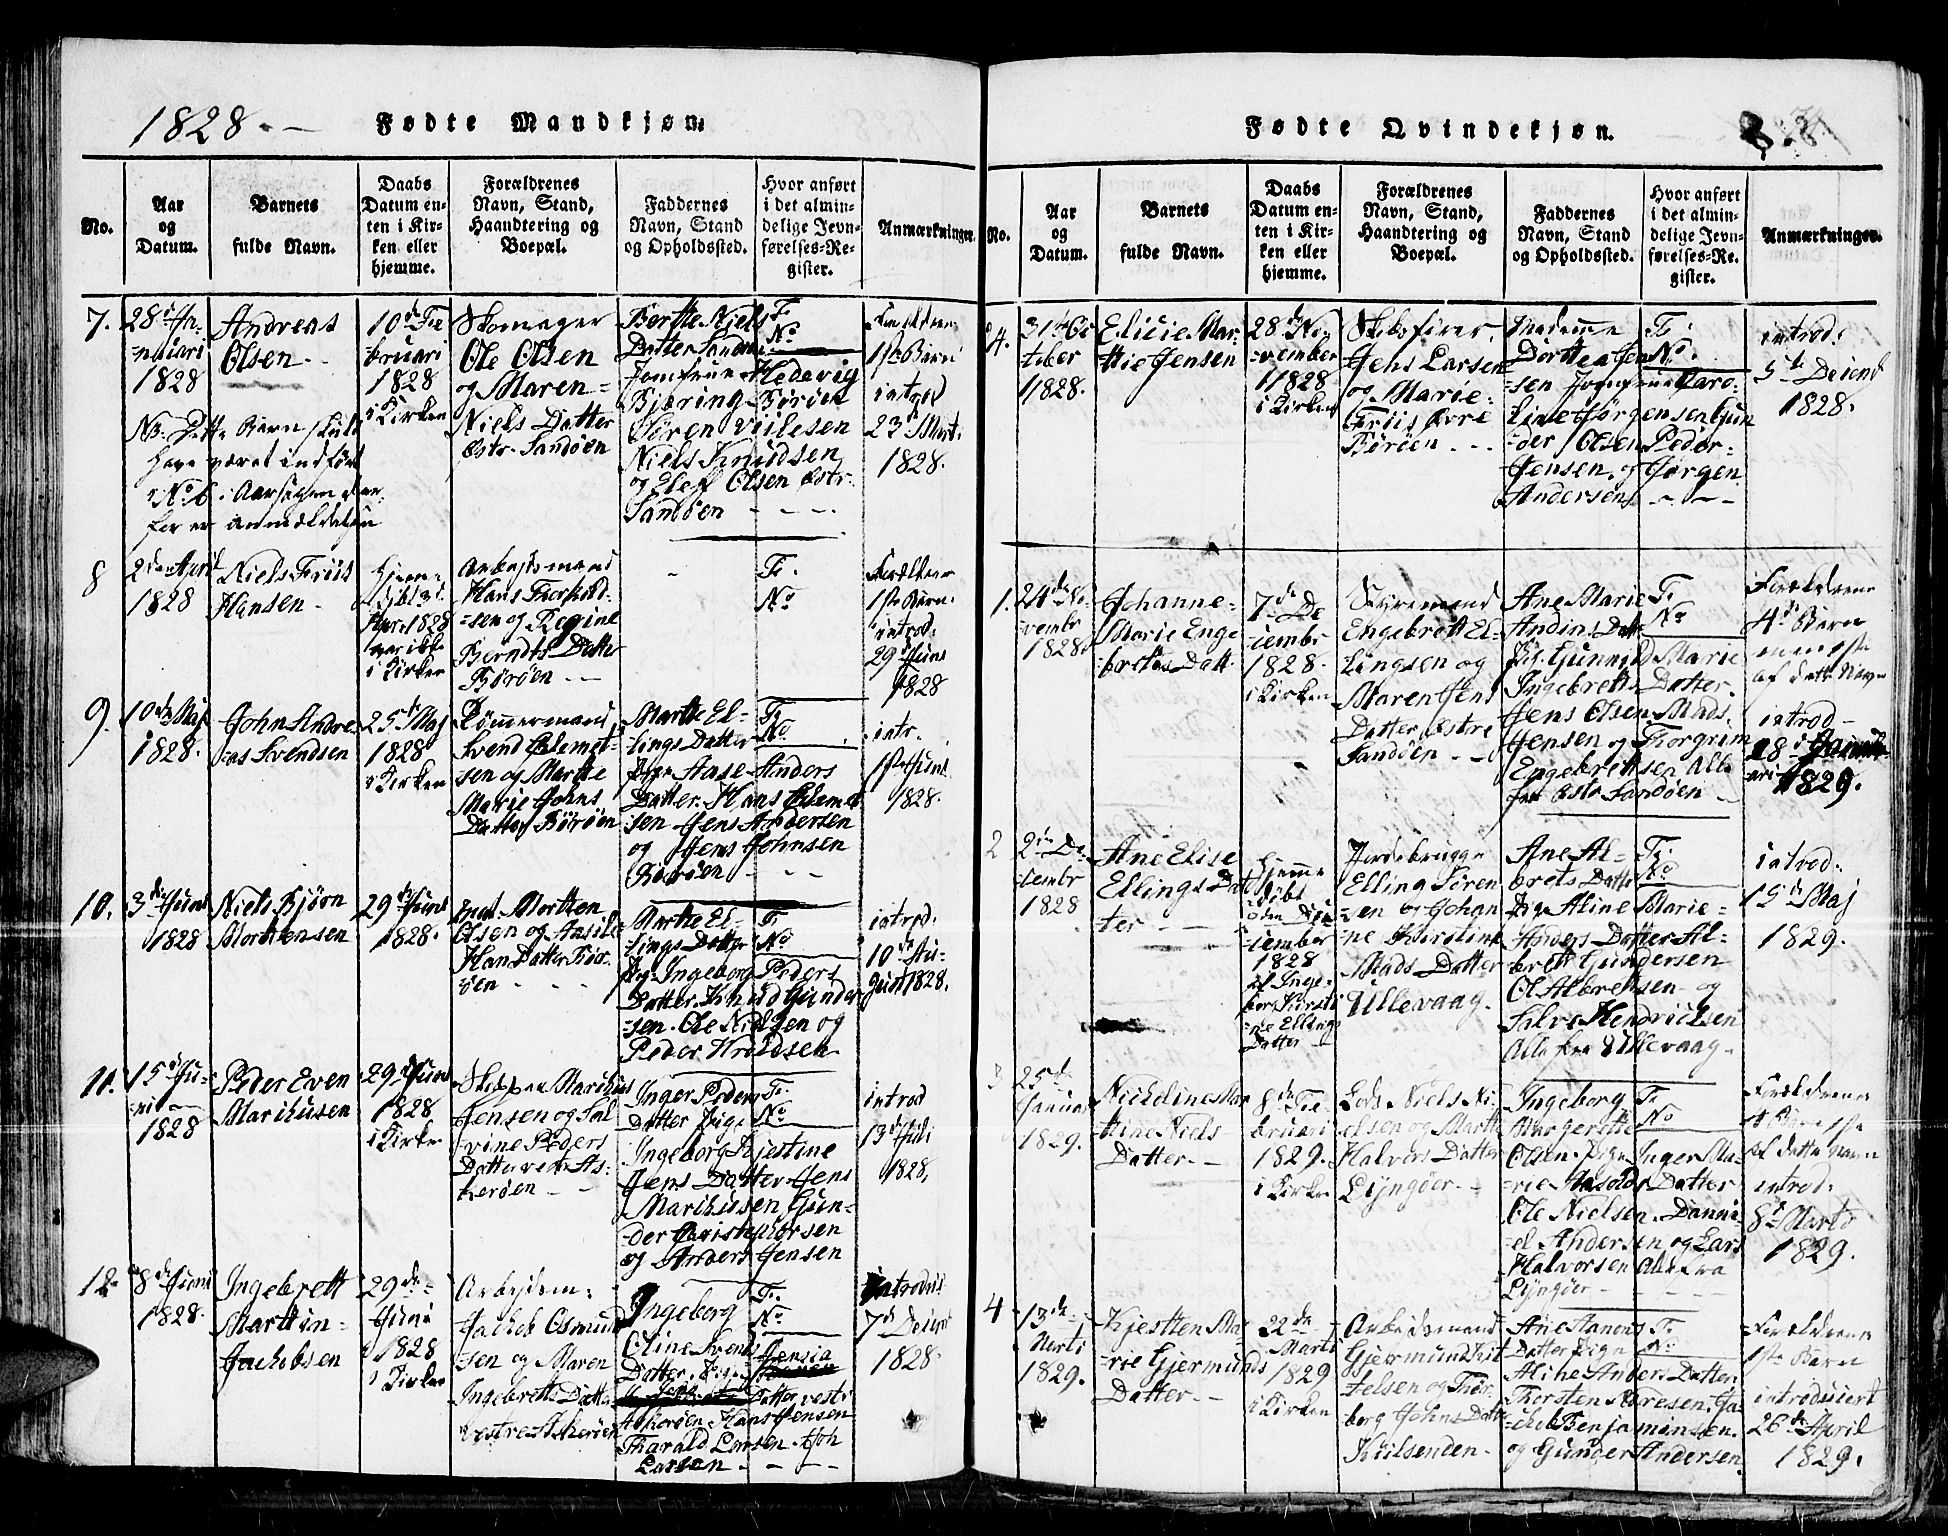 1828. -
Fødte Mandkjøn.
No.
Aar
og
Datum.
Barnets
fulde Navn.
Daabs
Datum en-
ten i Kir-
ken eller
hjemme.
Forældrenes
Navn, Stand,
Haandtering og
Boepæl.
Faddernes
Navn, Stand
og Opholdssted.
Hvor anført
i det almin-
delige Jevn-
førelses-Re-
gister.
Anmærkninger.
7.
28d Ja-
nuari
1828
Andreas
Olsen
10d Fe
bruari
1828
i Kirken
Skomager
Ole Olsen
og Maren
Niels Datter
østr. Sandøen
Berthe Niels
Datter Sandøe
Jomfrue Hedevig
Bjering Børøen
Søren Vielesen
Niels Knudsen
og Elef Olsen østr.
Sandøen
F.
No
Forældrenes
1ste Barn
introd
23d Mart.
1828.
NB. Dette Barn skulde
have været indført
No 6
for er anmeldelsen
8
2den April
1828
Niels Friis
Hansen
Hjemme-
døbt 3d
Apr. 1828
var ikke
i Kirken
Arbejdsmand
Hans Thorkild-
sen og Regine
Berndts Datter
Børøen
F.
No
Forældrenes
1ste Barn.
introd.
29d Juni
1828
9.
10de Maj
1828.
John Andre
as Svendsen
25de Maj
1828
i Kirken
Tømmermand
Svend Clemet-
sen og Marthe
Marie Johns
Datter Børøen
Marthe El-
lings Datter
Pige Aase Anders
Datter. Hans Cleme
sen Jens Andersen
og Jens Johnsen
Børøen
F.
No
intr.
1ste Juni
1828.
10.
3die Juni
1828
Niels Bjørn
Mortensen
29de Juni
1828.
Morten
Olsen og
Hans Datter Bør-
øen
Marthe El-
lings Datter
Pig. Ingeborg Peders
Datter. Knud Gunder
sen. Ole Nielsen og
Peder Knudsen
F.
No
introd.
10de Au-
gust 1828.
11.
15d Ju-
ni
1828
Peder Even
Marchusen
29d Juni
1828
i Kirken
Skipper Marchus
Jensen og Sal
vine Peders
Datter vestr As-
kerøen
Inger Peders
Datter Pige
Ingeborg Kjestine
Jens Datter Jens
Marchusen Gun-
der Christophersen
og Anders Jensen
F.
No
introd
13d Juli
1828.
12.
8de Juni
1828.
Ingebrett
Marthin
Jachobsen
29de
Juni
1828
i Kirken
Arbejdsm.
Jachob Osmund
sen og Maren
Ingebretts Datter
vestre Askerøen
Ingeborg
Oline Svends
Datter. Pige Jensia
Datter vestr
Askerøen. Hans Jensen
Tharald Larsen. Joh
Larsen
F.
No
introduc
7d
1828.
Fødte Qvindekjøn.
No.
Aar
og
Datum.
Barnets
fulde Navn.
Daabs
Datum en-
ten i Kir-
ken eller
hjemme.
Forældrenes
Navn, Stand,
Haandtering og
Boepæl.
Faddernes
Navn, Stand
og Opholdssted.
Hvor anført
i det almin-
delige Jevn-
førelses-Re-
gister.
Anmærkninger.
4.
31te Oc
tober
1828.
Elicie Mar-
thie Jensen
28de No-
vember
1828
i Kirken
Skibsfører
Jens Larsen
og Marie
Friis
Børøen
Madamme
Dorthea Jen
sen Jomfrue Caro-
line Jørgensen Gun
der Olsen Peder
Jensen, og Jørgen
Andersen
F.
No.
introd:
5te Decemb
1828.
1.
24de No-
vembr
1828
Johanne
Marie Enge
brets Datt.
7de De
cembr
1828.
i Kirken
Styrmand
Engebrett El-
lingsen og
Maren Jens
Datter østre
Sandøen
Ane Marie
Andins Datt
Pig. Gunnild Marie
Ingebretts Datter.
Jens Olsen. Mads
Jensen og Thorgrim
Engebrettsen Alle
fra østr Sandøen
F.
No
Forældrenes
4de Barn
af dette Navn
introd
18d Janu
ari
1829.
2
2den De-
cembr
1828
Ane Elise
Ellings Dat
ter
hjemme
døbt
den
cember
1828
af Inge-
bor Kirsti
ne Ellings
Datter
Elling Søren
sen og Johan
ne Kirstine
Mads Datter
Ullevaag.
Ane Al-
brets Datter
Pige Aline Marie
Anders Datter Al-
brett Gundersen
Ol Albretsen og
Salve Hendrichsen
Alle fra Ullevaag
F.
No
introd.
15de Maj
1829.
3
25de
Januar
1829.
Nicholine Mar
thine Niels
Datter
8de Fe-
bruari
1829.
i Kirken
Lods Niels Ni
elsen og Marthe
Halvors Datter
Lyngøer
Ingeborg
Margerethe
Olsen. Pige Inger Ma-
rie Datter
Ole Nielsen. Danni-
el Andersen og Lars
Halvorsen Alle fra
Lyngøer
F.
No
Forældrenes
af dette Navn
introd:
8d Marts
1829.
4
13de
Marti
1829.
Kjesten Ma-
rie Gjermunds
Datter
22de
Marti
1829
i Kirken
Arbeidsmand
Gjermund Kit
telsen og Thor
borg Johns Datter
Kiilsenden
Ane
Datter Pige
Aline Anders Datter.
Thorsten Aresen. Ja-
chob Benjaminsen.
og Gunder Andersen
F.
No
Forældrenes
1ste Barn
introduceret
26de April
1829.